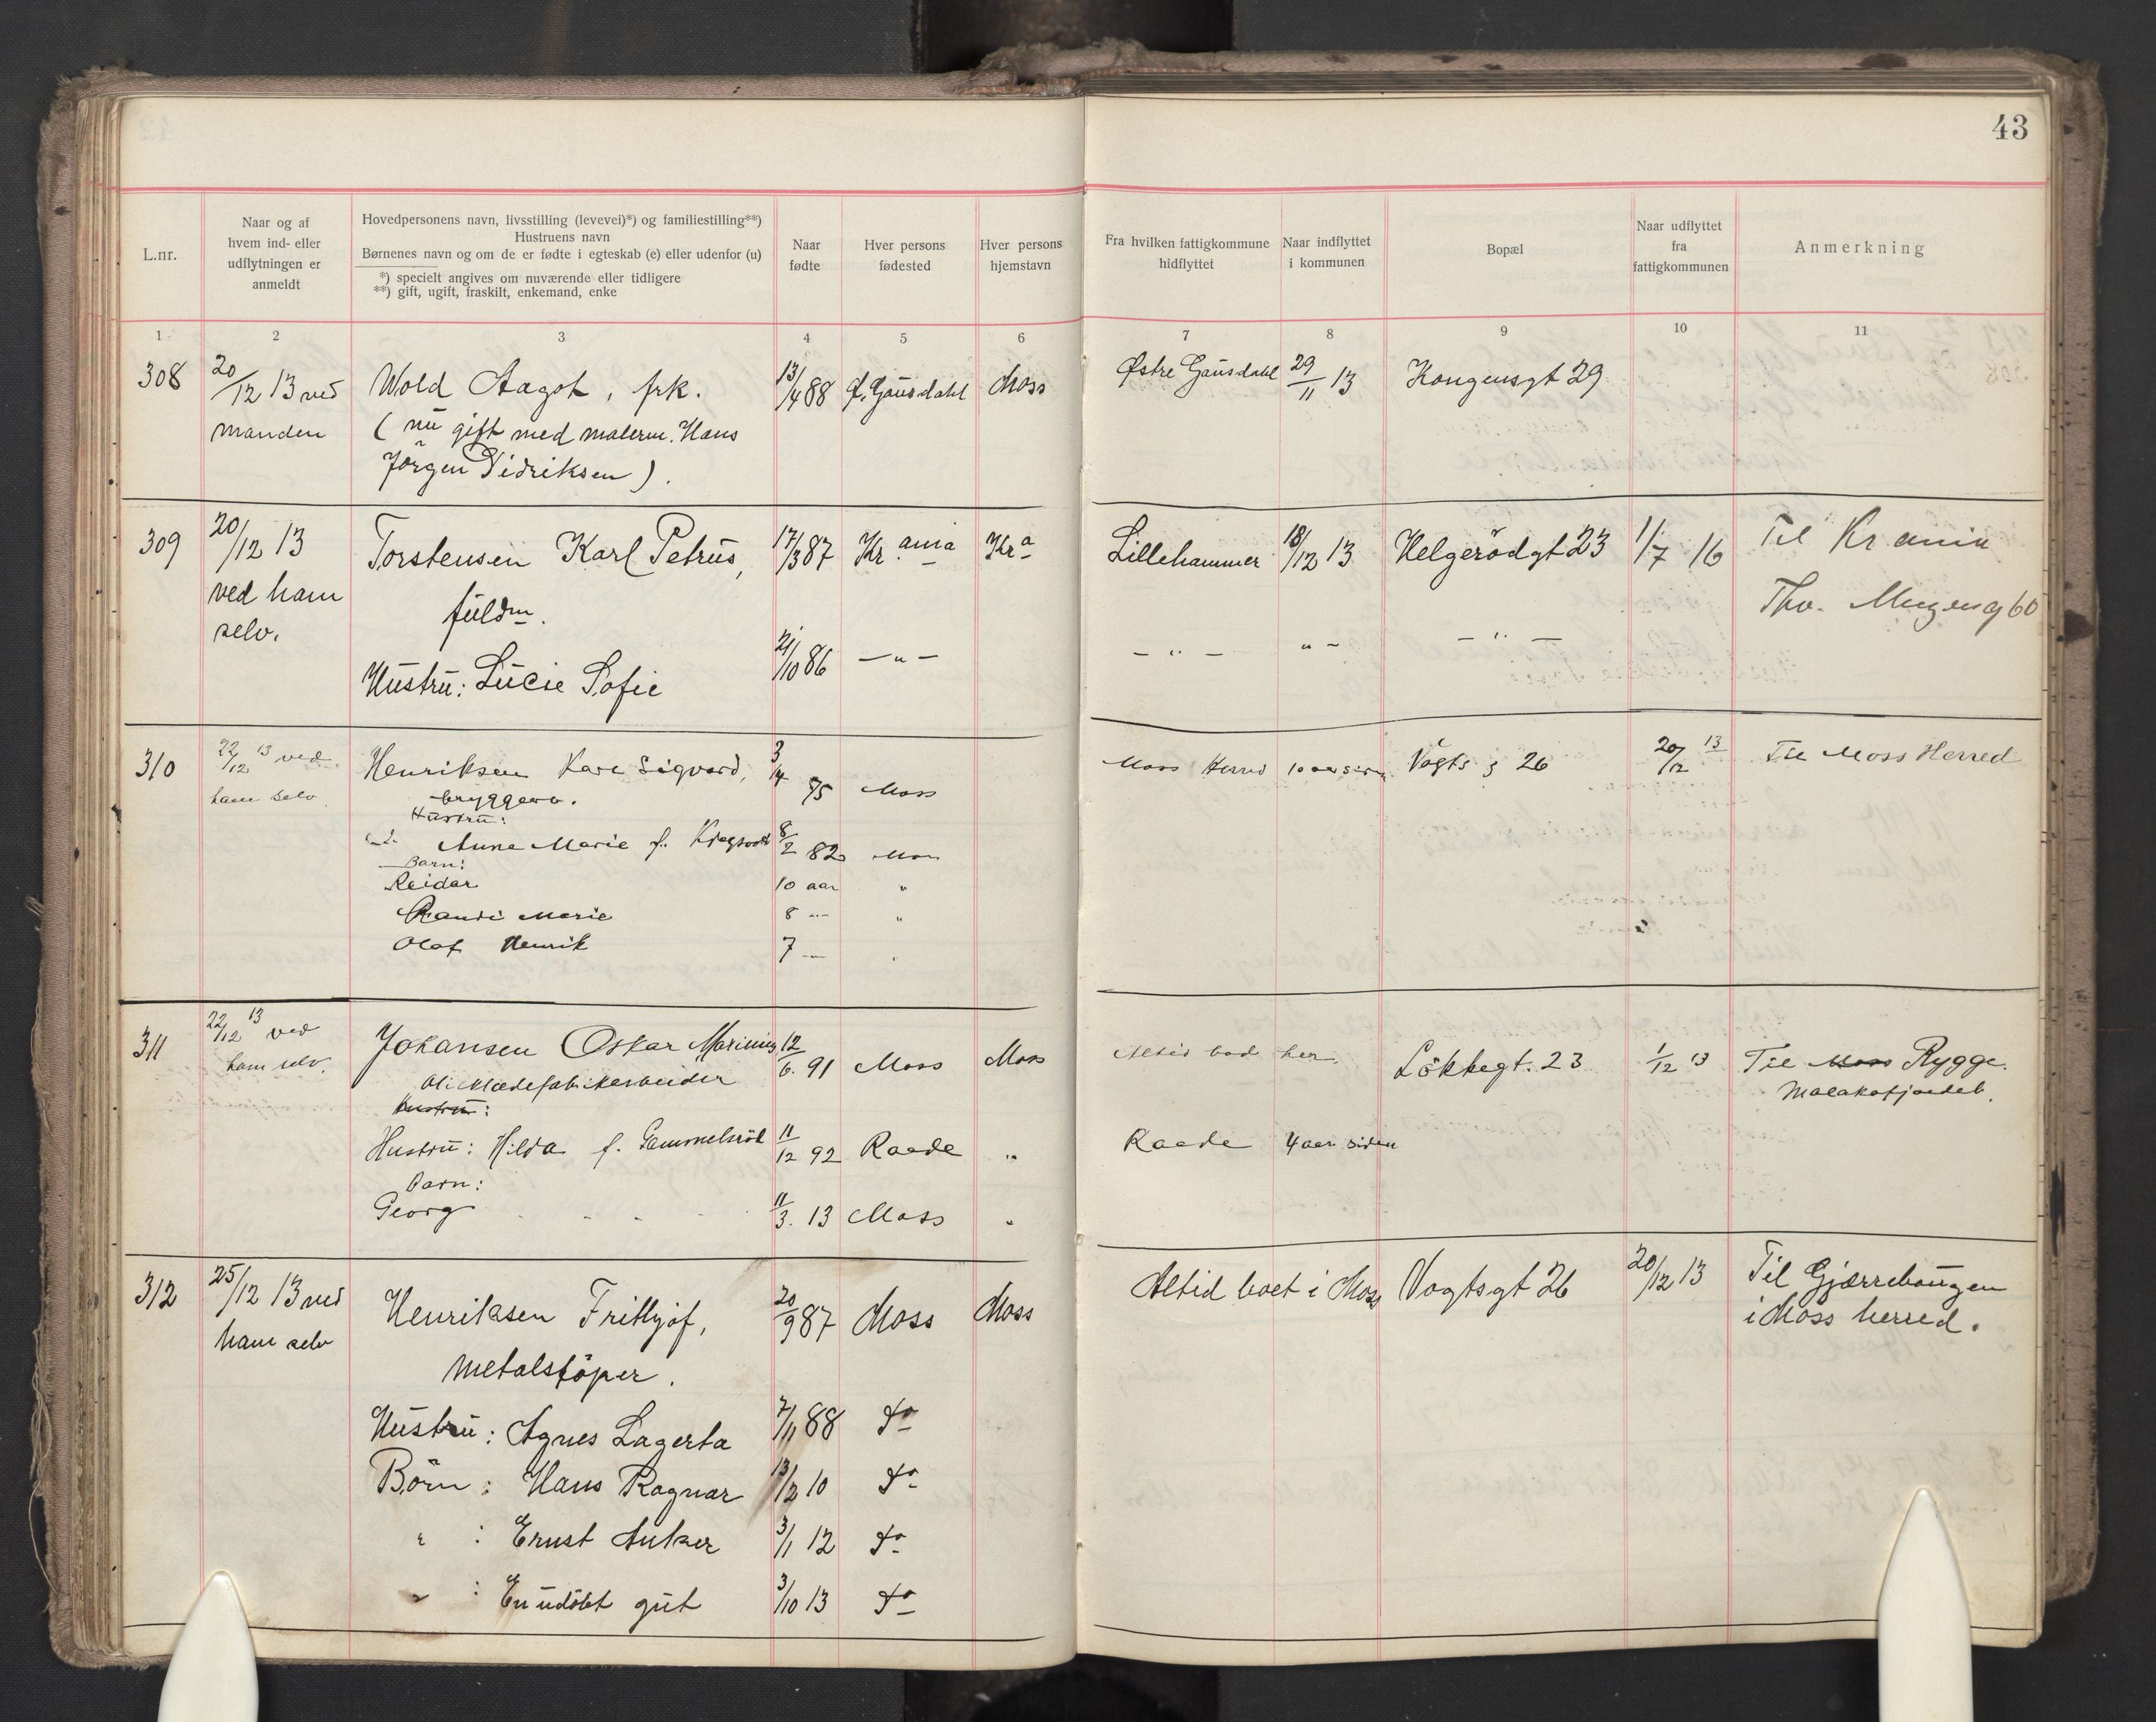 43
L.nr.
Naar og af
hvem ind- eller
udflytningen er
anmeldt
Hovedpersonens navn, livsstilling (levevei)*) og familiestilling**)
Hustruens navn
Børnenes navn og om de er fødte i egteskab (e) eller udenfor (u)
*) specielt angives om nuværende eller tidligere
**) gift, ugift, fraskilt, enkemand, enke
Naar
fødte
Hver persons
fødested
Hver persons
hjemstavn
Fra hvilken fattigkommune
hidflyttet
Naar indflyttet
i kommunen
Bopæl
Naar udflyttet
fra
fattigkommunen
Anmerkning
1 2 3 4 5 6 7 8 9 10 11
308 20/12 13 ved Wold Aagot, frk. 13/4 88 Ø. Gausdahl Moss Østre Gausdahl 29/11 13 Kongensgt 29
manden (nu gift med malerm. Hans
Jørgen Didriksen).
309 20/12 13 Torstensen Karl Petrus, 17/3 87 Kr.ania Kra Lillehammer 18/12 13 Helgerödgt 23 1/7 16 Til Krania
ved ham fuldm. Thv. Meyersg 60
selv.
Hustru: Lucie Sofie 21/10 86 — " — — " — " — — " —
310 22/12 13 ved Henriksen Karl Sigvard, 3/4 75 Moss Moss Herred 10 aar siden Vogts g 26 20/12 13 Til Moss Herred
ham selv bryggeria.
Hustru:
Anne Marie f. 8/2 82 Moss
Barn:
Reidar 10 aar "
Randi Marie 8 — "
Olaf Henrik 7 — "
311 22/12 13 ved Johansen Oskar Marinius 12/6. 91 Moss Moss Altid bod her Lökkegt. 23 1/12 13 Til Moss Rygge.
ham selv. Oliklædefabrikarbeider
Hustru:
Hustru: Hilda f. Gammelsröd 11/12 92 Raade " Raade 4 aar siden
Barn:
Georg 11/3. 13 Moss "
312 25/12 13 ved Henriksen Frithjof, 20/9 87 Moss Moss Altid boet i Moss Vogtsgt 26 20/12 13 Til Gjærrebougen
ham selv i Moss herred.
Metalstöper.
Hustru: Agnes Lagerta 7/11 88 do
Börn: Hans Ragnar 13/2 10 do
" : Ernst Anker 3/1 12 do
" : En udöbt gut 3/10 13 do